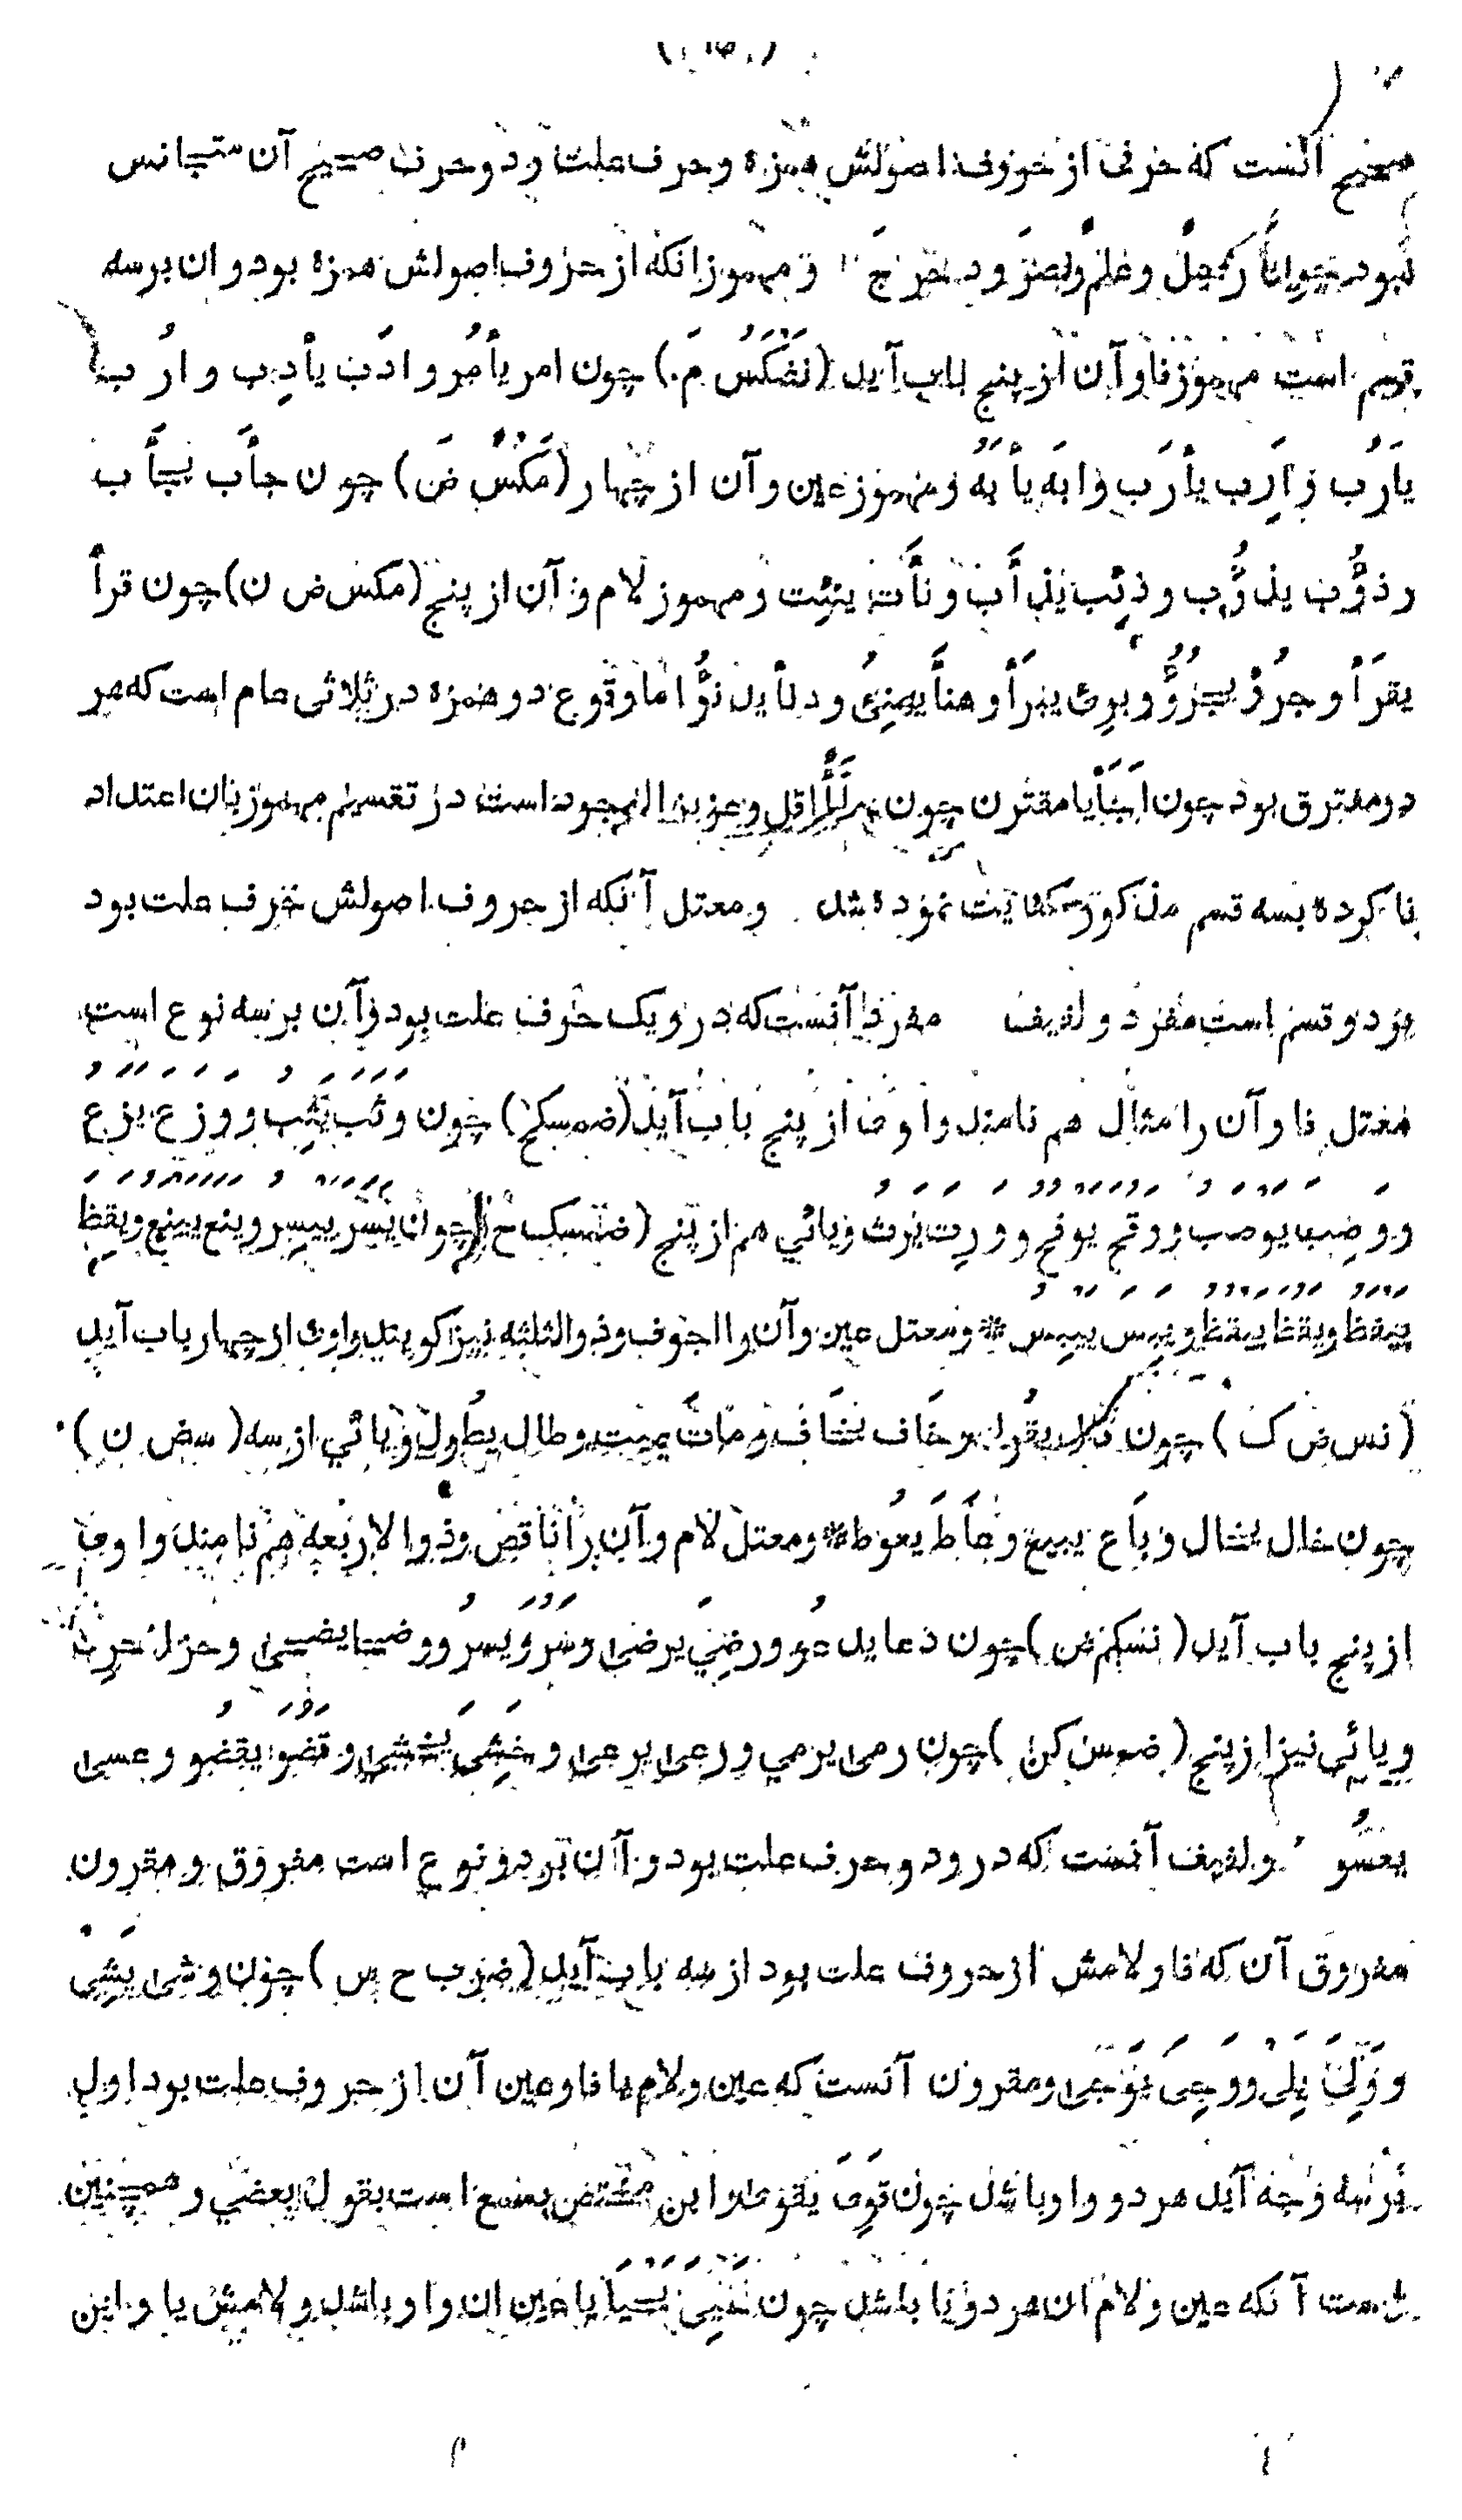 صحیح آنست که حرفی از حروف اصولش همزه و حرف علت و دو حرف صحیح آن متجانس
نبود چون رجل و علم و نصر و دحرج و مهموز انکه از حروف اصولش همزه بود و ان برسه
قسم است مهموز فا و آن از پنج باب آید (نضکس م) چون امر یأمُر و ادَب یأدِب و ارُب
یأرُب و اَرِب یأرَب و ابَه یأبَه و مهموز عین و آن از چهار (مکس ض) چون جأَب یجأَب
و ذؤُب یذؤُب و ذئِب یذأَب و نأَت ینئِت و مهموز لام و آن از پنج (مکس ض ن) چون قرأ
یقرَأ و جرُؤ یجرُؤ و برِئ یبرَأ و هنأَ یهنِئ و دنأ یدنؤُ اما وقوع دو همزه در ثلاثی عام است که هر
دو مفترق بود چون اَبَأَ یا مقترن چون اقل و عزیز الوجود است در تقسیم مهموز بان اعتداد
نا کرده بسه قسم مذکور کفایت نموده شد و معتل آنکه از حروف اصولش حرف علت بود
بر دو قسم است مفرد و لفیف مفرد آنست که در و یک حرف علت بود و آن برسه نوع است
معتل فا و آن را مثال هم نامند واوی از پنج باب آید (ضمسکح) چون وثب یثب و وزع یزع
و وضِب یوصب و وقح یوقح و ورِث یرث و یائي هم از پنج (ضمسکح) چون یسر ییسر و ینع یینع و یقظ
ییقظ و یقظ ییقظ و یبس ییبس * و معتل عین و آن را اجوف و ذوالثلثه نیز گویند واوی از چهار باب آید
(نس ض ک) چون قال یقول و خاف یخاف و مات یمیت و طال یطول و یائي از سه (سض ن)
چون خال یخال و باع یبیع و عاط یعوط * و معتل لام و آن را ناقص و ذوالاربعه هم نامند واوی
از پنج باب آید (نسکم ض) چون دعا یدعو و رضِيَ یرضی و سَرُو یسرُو و ضحا یضحی و
و یائي نیز از پنج (ضمس کن) چون رمی یرمي و رعی یرعی و خشِی یخشی و قضو یقضو و عسی
یعسُو و لفیف آنست که در و دو حرف علت بود و آن بر دو نوع است مفروق و مقرون
مفروق آن که فا و لامش از حروف علت بود از سه باب آید (ضرب ح س) چون وشی یشِی
و وَلِيَ یلِی و وجِیَ یوجَی و مقرون آنست که عین و لام یا فا و عین آن از حروف علت بود اول
برسه وجه آید هر دو واو باشد چون قوِیَ یقوی و این مختص بسمع است بقول بعضي و همچنین
است آنکه عین و لام ان هر دو یا باشد چون حَیِیَ یحیَا یا عین ان واو باشد و لامش یا و این